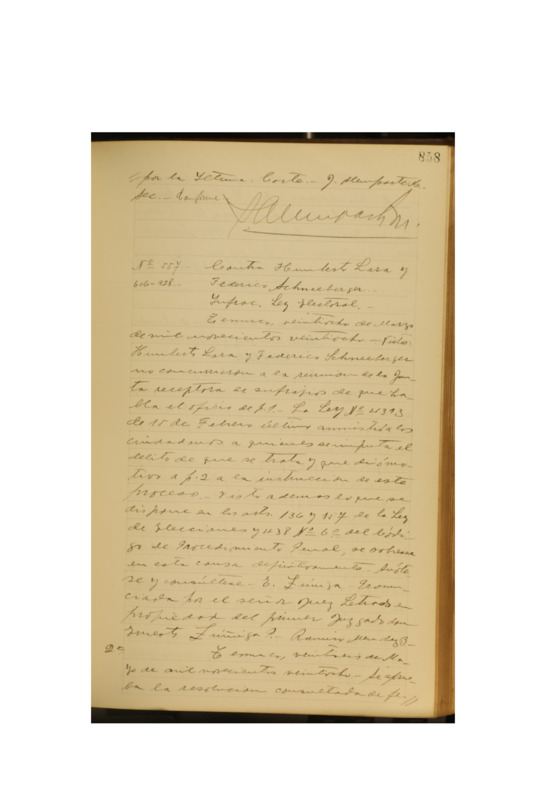 858
por la Iltma. Corte.- J. Mempaste
Sec.- Conforme
Nº 557 Contra Humberto Lara y
Federico Schneeberger.
Infrac. Ley Electoral.-
Temuco, veintiocho de Marzo
de mil novecientos veintiocho.- Vistos:
Humberto Lara y Federico Schneeberger
no concurrieron a la reunion de la Jun
ta receptora de sufrajios de que ha-
bla el oficio de f 1.- La Ley Nº 4313
de 15 de Febrero último amnistió a los
ciudadanos a quienes se imputa el
delito de que se trata y que dió mo-
tivo a f. 2 a la instruccion de este
proceso.- Visto ademas lo que se
dispone en los arts. 136 y 137 de la Ley
de Elecciones y 438 Nº 6º del Códi-
go de Procedimiento Penal, se sobresee
en esta causa definitivamente. Anóte
se y consúltese.- E. Zúñiga.- Pronun-
ciada por el señor Juez Letrado en
propiedad del primer Juzgado don
Ernesto Zúñiga P.- Ramiro Mendez B.-
Temuco, veintiseis de Ma-
yo de mil novecientos veintiocho.- Se aprue-
ba la resolucion consultada de fs.